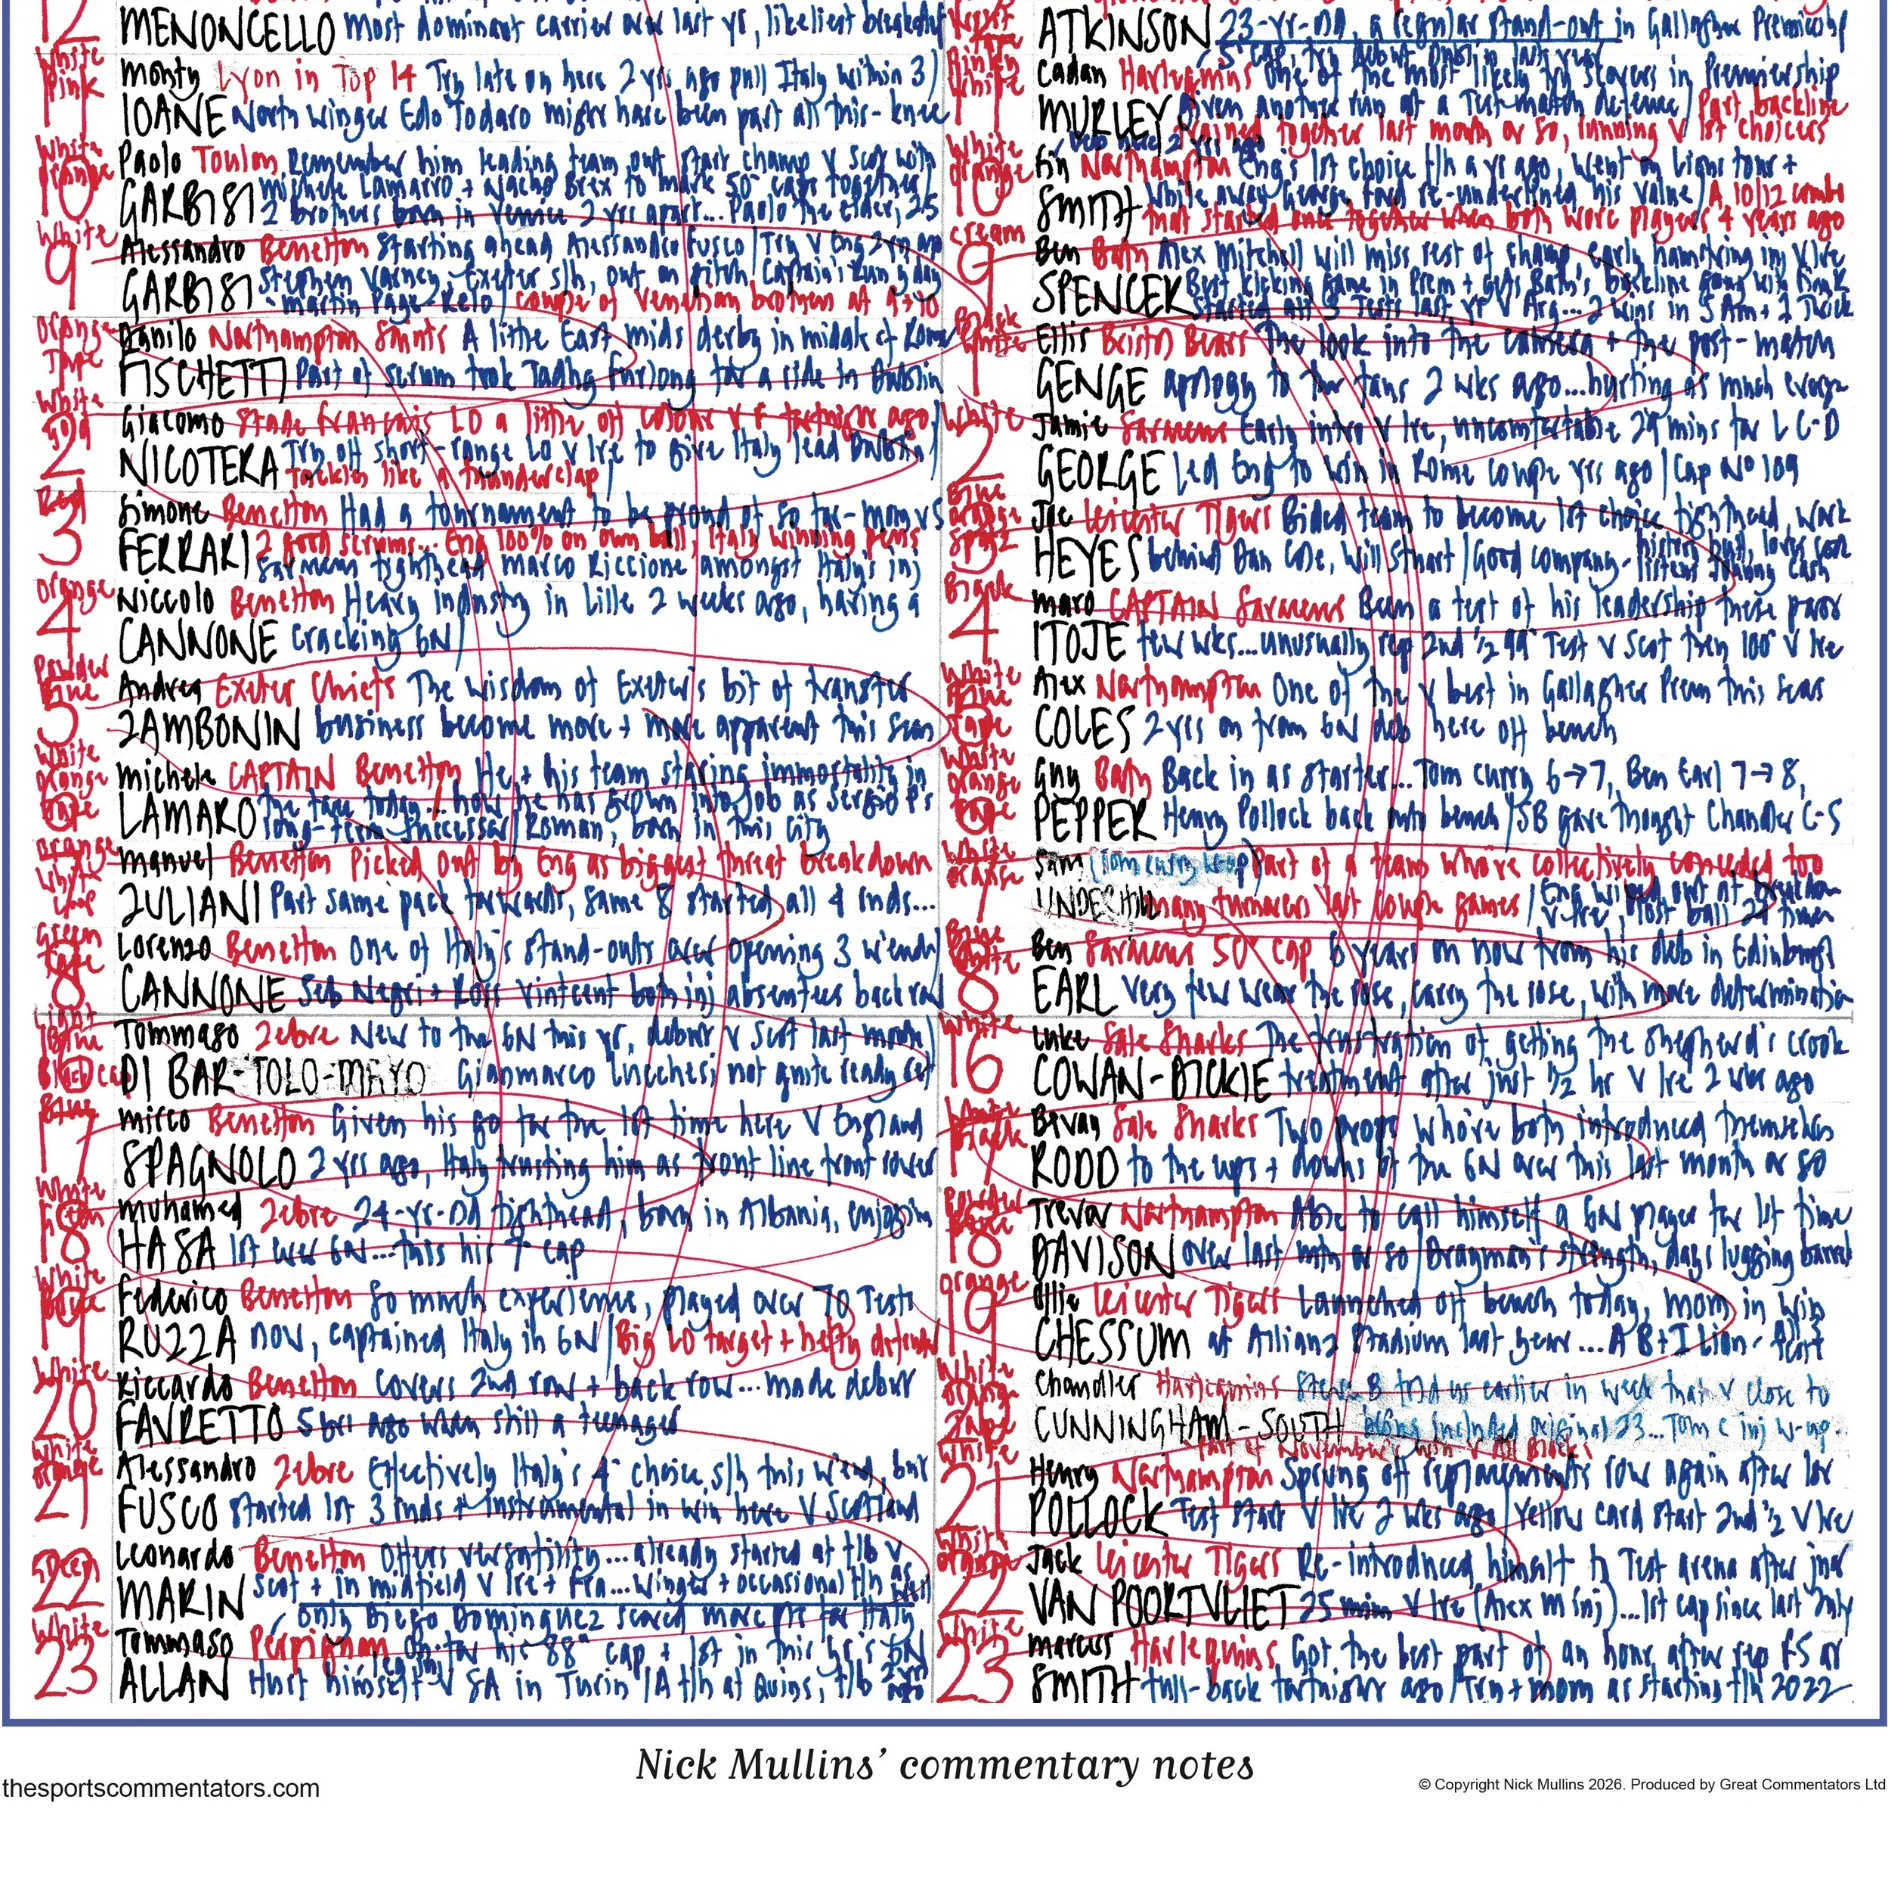 12
MENONCELLO most dominant carrier over last yr, likeliest breakdown
White Pink
11
Monty Lyon in Top 14 Try late on here 2 yrs ago pull Italy within 3
IOANE North Winger Edo Todaro might have been part all this - knee
White Orange
10
Paolo Toulon Remember him leading team out start champ v Scot with
Michele Lamarro + Nacho Brex to mark 50 caps together
GARBISI 2 brothers born in Venice 2 yrs apart... Paolo the elder, 25
White
9
Alessandro Benetton Starting ahead Alessandro Fusco / Try v Eng 2 yrs ago
Stephen Varney, Exeter s/h, out on pitch Captain's Run yday
GARBISI - Martin Page-Relo / couple of Venetian brothers at 9 + 10
Orange Tape
1
Danilo Northampton Saints A little East mids derby in midst of Rome
FISCHETTI Part of scrum took Tadhg Furlong for a ride in Dublin
White Gold
2
Giacomo Stade Francais LO a little off colour v F fortnight ago
Try off short-range LO v Ire to give Italy lead Dublin
NICOTERA Tackles like a thunderclap
Red
3
Simone Benetton Had a tournament to be proud of so far - mom v S
FERRARI 2 good scrums... Eng 100% on own ball, Italy winning pens
Saracens tighthead Marco Riccione amongst Italy's inj
Orange
4
Niccolo Benetton Heavy industry in Lille 2 weeks ago, having a
CANNONE cracking 6N
Powder Blue
5
Andrea Exeter Chiefs The wisdom of Exeter's bit of transfer
ZAMBONIN business become more + more apparent this seas
White Orange Tape
6
Michele CAPTAIN Benetton He + his team staring immortality in
the face today... how he has grown into job as Sergio P's
LAMARO long-term successor / Roman, born in this city
Orange White Crop
7
Manuel Benetton Picked out by Eng as biggest threat breakdown
ZULIANI Part same pack forwards, same 8 started all 4 rnds...
Green Tape
8
Lorenzo Benetton One of Italy's stand-outs over opening 3 w'ends
CANNONE Seb Negri + Ross Vintcent both inj absentees back row
Light Blue Black cap
Tommaso Zebre New to the 6N this yr, debut v Scot last month
DI BAR-TOLO-MAYO Gianmarco Lucchesi not quite ready yet
Blue
17
Mirco Benetton Given his go for the 1st time here v England
SPAGNOLO 2 yrs ago, Italy trusting him as front line front rower
White
18
Muhamed Zebre 24-yr-old tighthead, born in Albania, enjoyin
HASA 1st ever 6N... this his 7 cap
White Boots
19
Federico Benetton So much experience, played over 70 Tests
RUZZA now, captained Italy in 6N / Big LO target + hefty defender
White
20
Riccardo Benetton Covers 2nd row + back row... made debut
FAVRETTO 5 yrs ago when still a teenager
White Orange
21
Alessandro Zebre Effectively Italy's 4 choice s/h this w'end, but
FUSCO started 1st 3 rnds + instrumental in win here v Scotland
Green
22
Leonardo Benetton Offers versatility... already started at f/b v
MARIN Scot + in midfield v Ire + Fra... Winger + occasional f/h as
only Diego Dominguez scored more pts for Italy
White
23
Tommaso Perpignan On for his 88 cap + 1st in this yr's 6N
ALLAN Hurt himself v SA in Turin / A f/h at Quins, f/b 2 yrs ago
ATKINSON 23-yr-old, a regular stand-out in Gallagher Premiership
5 cap, try debut Dublin last year
White
11
Cadan Harlequins One of the most likely try scorers in Premiership
MURLEY Given another run at a Test-match defence / Part backline
trained together last month or so, running v 1st choicers
Deb here 2 yrs ago
White Orange
10
Fin Northampton Eng's 1st choice f/h a yr ago, went on Lions tour +
while away George Ford re-underlined his value / A 10/12 combo
SMITH that started once together when both were players 4 years ago
cream
9
Ben Bath Alex Mitchell will miss rest of champ, early hamstring inj v Ire
Best kicking game in Prem + gets Bath's backline going with Fin R
SPENCER Started all 3 Tests last yr v Arg... 2 wins in S Am + 1 Twick
Black White
1
Ellis Bristol Bears The look into the camera + the post-match
GENGE apology to the fans 2 wks ago... hurting as much every
White
2
Jamie Saracens Early intro v Ire, uncomfortable 29 mins for L C-D
GEORGE Led Eng to win in Rome couple yrs ago / Cap No 109
Blue Orange Spatz
3
Joe Leicester Tigers Bided team to become 1st choice tighthead, work
HEYES behind Dan Cole, Will Stuart / Good company - history buff, loves
listens Johnny Cash
Black
4
Maro CAPTAIN Saracens Been a test of his leadership these past
ITOJE few wks... unusually rep 2nd ½ 99 Test v Scot then 100 v Ire
White Blue Tape
5
Alex Northampton One of the v best in Gallagher Prem this seas
COLES 2 yrs on from 6N deb here off bench
White Orange Tape
6
Guy Bath Back in as starter... Tom Curry 6→7, Ben Earl 7→8,
PEPPER Henry Pollock back onto bench / SB gave thought Chandler C-S
White Orange
7
Sam (Tom Curry w-up) Part of a team who're collectively conceded too
UNDERHILL many turnovers last couple games / Eng wiped out at breakdown
v Ire, lost ball 24 times
Blue White
8
Ben Saracens 50 cap 6 years on now from his deb in Edinburgh
EARL Very few wear the rose, carry the rose, with more determination
White
16
Luke Sale Sharks The frustration of getting the shepherd's crook
COWAN-DICKIE treatment after just ½ hr v Ire 2 wks ago
White Black
17
Bevan Sale Sharks Two props who're both introduced themselves
RODD to the ups + downs of the 6N over this last month or so
Powder Blue
18
Trevor Northampton Able to call himself a 6N player for 1st time
DAVISON over last mth or so / Drayman's strength, days lugging barrel
Orange
19
Ollie Leicester Tigers Launched off bench today, mom in win
CHESSUM at Allianz Stadium last year... A B+I Lion -
White Orange Tape
Chandler Harlequins Steve B told us earlier in week that v close to
CUNNINGHAM-SOUTH being included original 23... Tom C inj w-up
Part of November's win v All Blacks
White
21
Henry Northampton Sprung off replacements row again after 1st
POLLOCK Test start v Ire 2 wks ago / Yellow card start 2nd ½ v Ire
White Orange
22
Jack Leicester Tigers Re-introduced himself to Test arena after inj
VAN POORTVLIET 25 mins v Ire (Alex M inj)... 1st cap since last July
White
23
Marcus Harlequins Got the best part of an hour after rep FS at
SMITH full-back fortnight ago / Try + mom as starting f/h 2022
Nick Mullins' commentary notes
thesportscommentators.com
© Copyright Nick Mullins 2026. Produced by Great Commentators Ltd